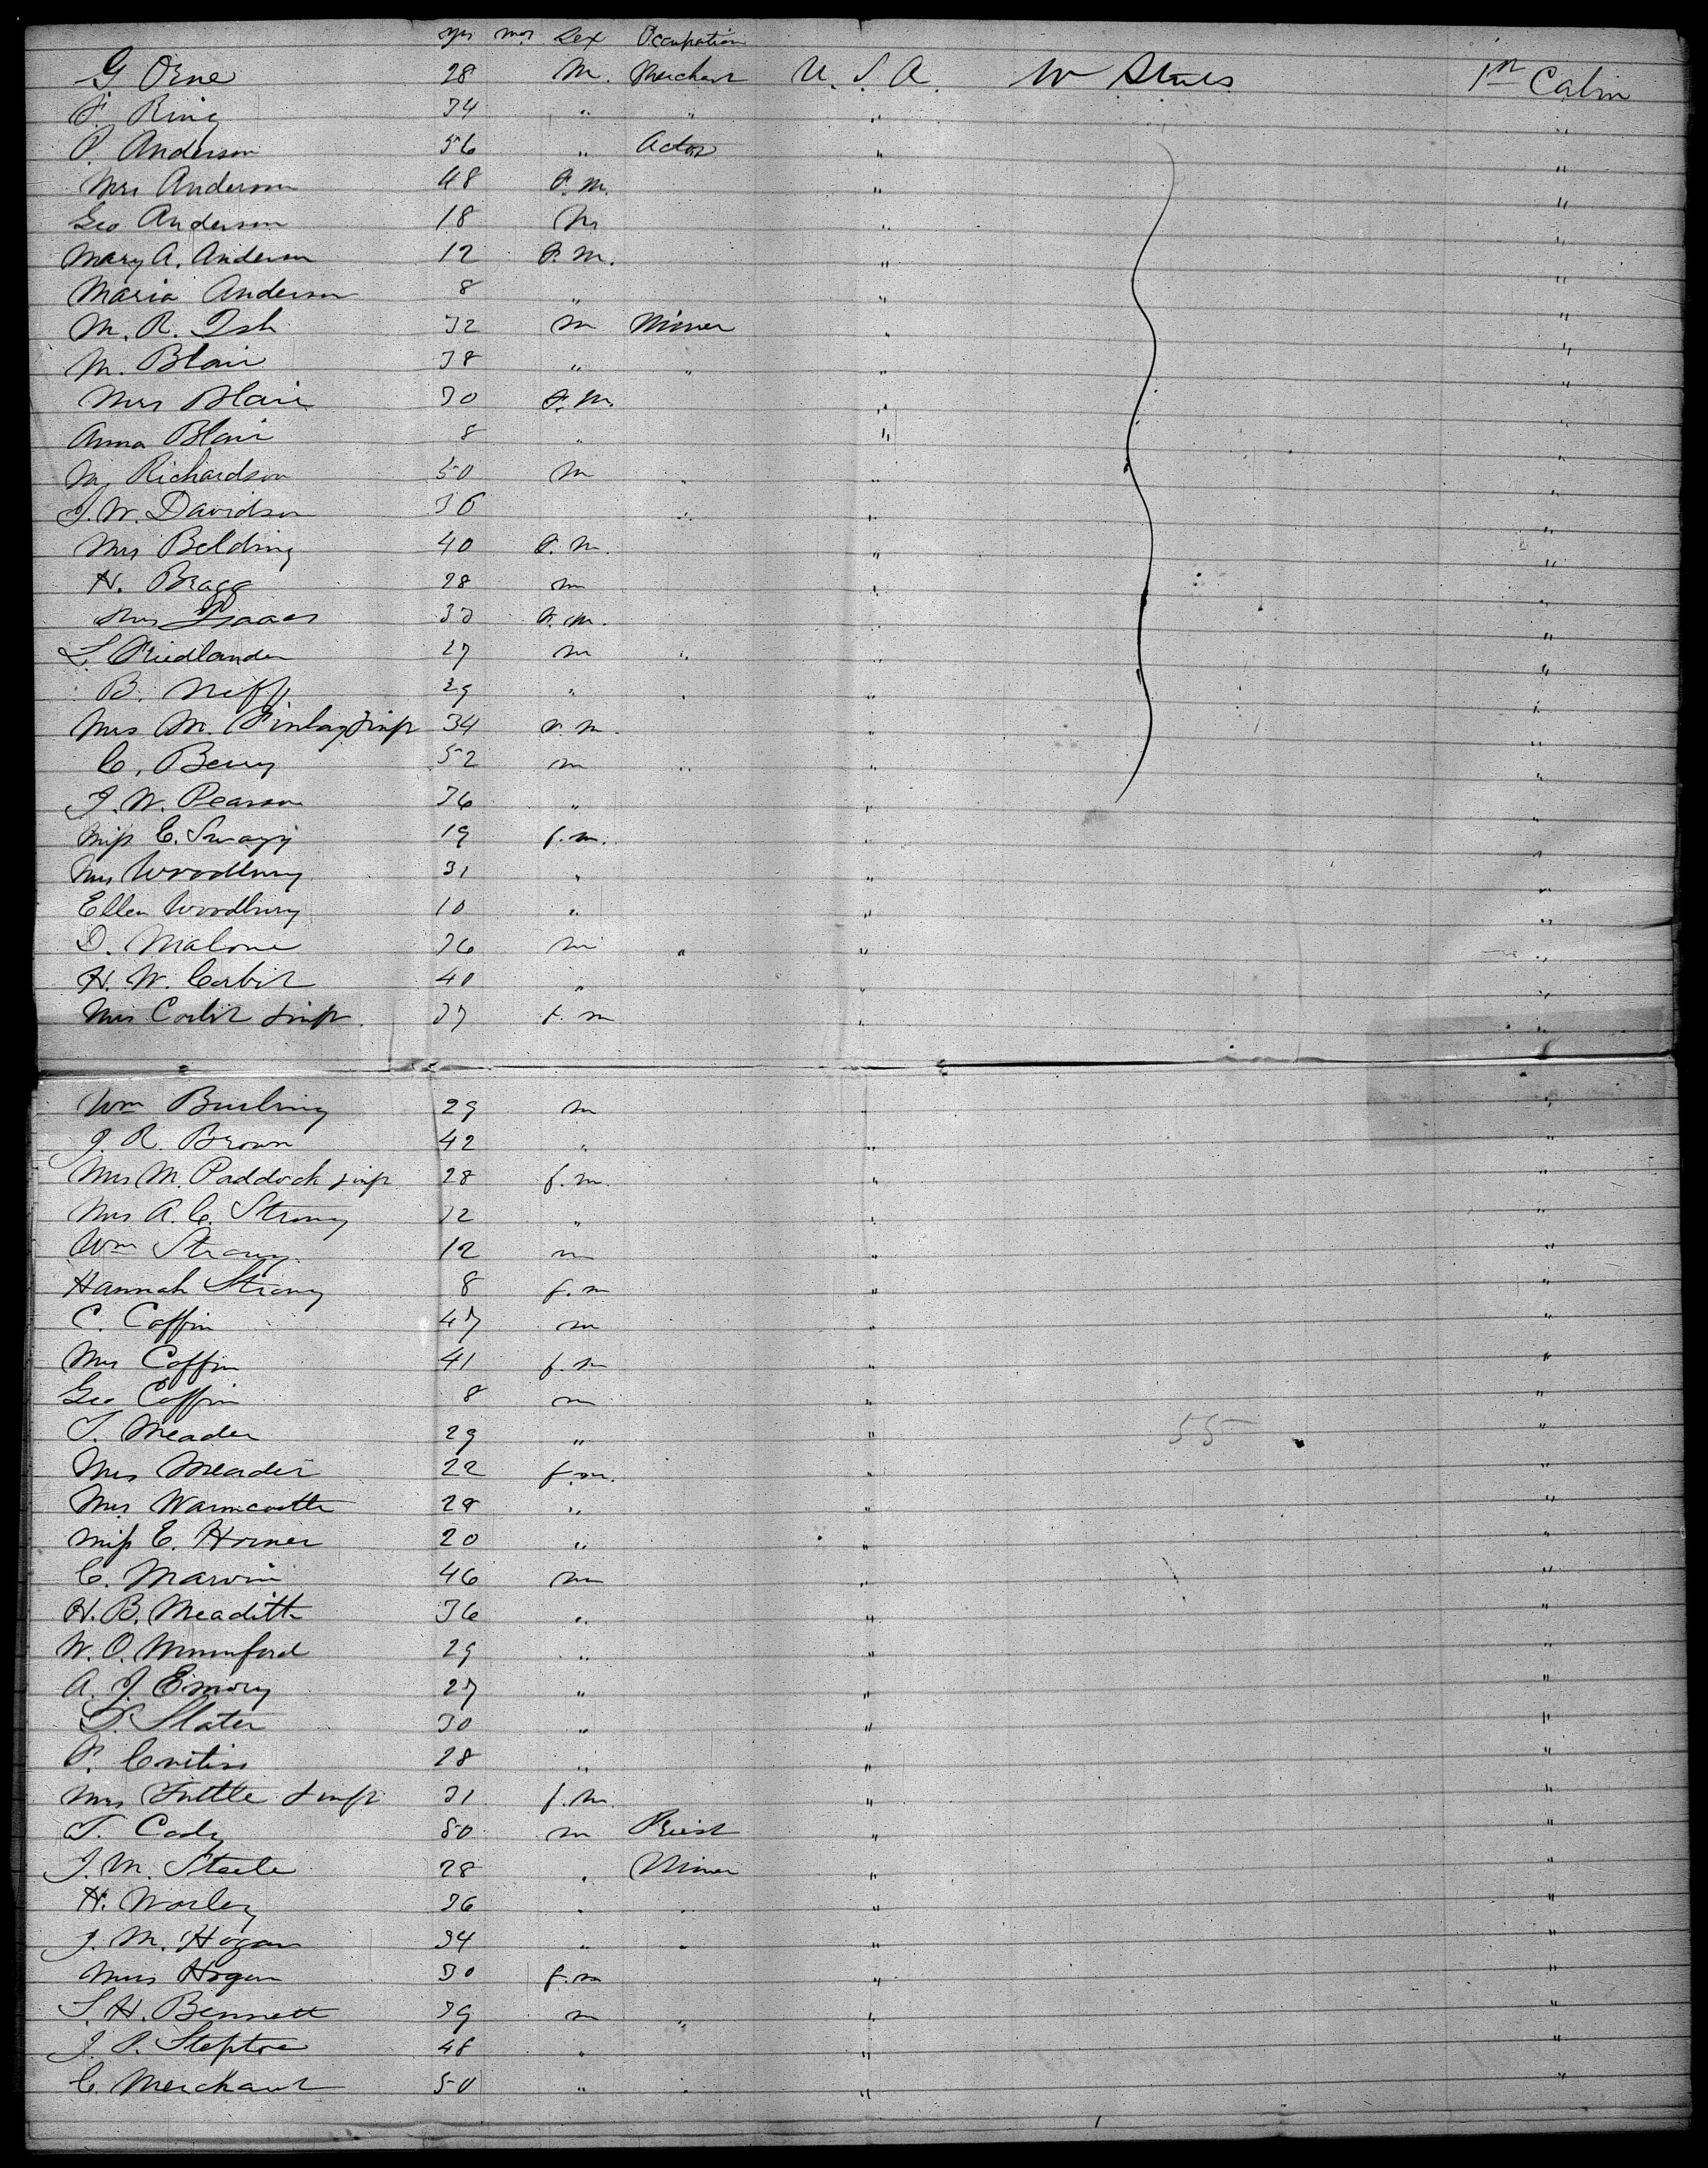 yrs mos Sex Occupation
G Orne 28 M. Merchant U.S.A. W States 1st Cabin
F. Ring 34 " " " "
P. Anderson 56 " Actor " "
Mrs Anderson 48 F.M. " "
Geo Anderson 18 M " "
Mary A. Anderson 12 F.M. " "
Maria Anderson 8 " " "
M. R. Ish 32 M Minner " "
M. Blair 38 " " " "
Mrs Blair 30 F.M. " "
Anna Blair 8 " " "
M. Richardson 50 M " " "
J. W. Davidson 36 " " "
Mrs Belding 40 F.M. " "
H. Bragg 28 m " "
Mrs Isaacs 33 F.M. " "
L. Friedlander 27 m " " "
B. Neff 29 " " " "
Mrs M. Finlay & inft 34 F.M. " "
C. Berry 52 m " " "
J. W. Pearson 36 " " "
Miss E. 19 f.m. " "
Mrs Woodbury 31 " " "
Ellen Woodbury 10 " " "
D. Malone 36 m " " "
H. W. Corbit 40 " " "
Mrs Corbit & inft 37 f.m " "
Wm Burling 29 m " "
J. R. Brown 42 " " "
Mrs M. Paddock & inft 28 f.m. " "
Mrs A. C. Strong 32 " " "
Wm Strong 12 m " "
Hannah Strong 8 f.m " "
C. Coffin 47 m " "
Mrs Coffin 41 f.m " "
Geo Coffin 8 m " "
T. Meader 29 " " 55 "
Mrs Meader 22 f.m. " "
Mrs Warmcastle 28 " " "
Miss E. Horner 20 " " "
C. Marvin 46 m " "
H. B. Meadith 36 " " "
W. O. Mumford 29 " " "
A. J. Emory 27 " " "
S. Slater 30 " " "
F. Curtiss 28 " " "
Mrs Tuttle & inft 31 f.m. " "
T. Cody 50 m Priest " "
J. M. Steele 28 " Minner " "
H. Worley 36 " " " "
J. M. Hogan 34 " " " "
Mrs Hogan 30 f.m " "
S. H. Bennett 39 m " " "
J. P. Steptoe 48 " " "
C. Merchant 50 " " " "